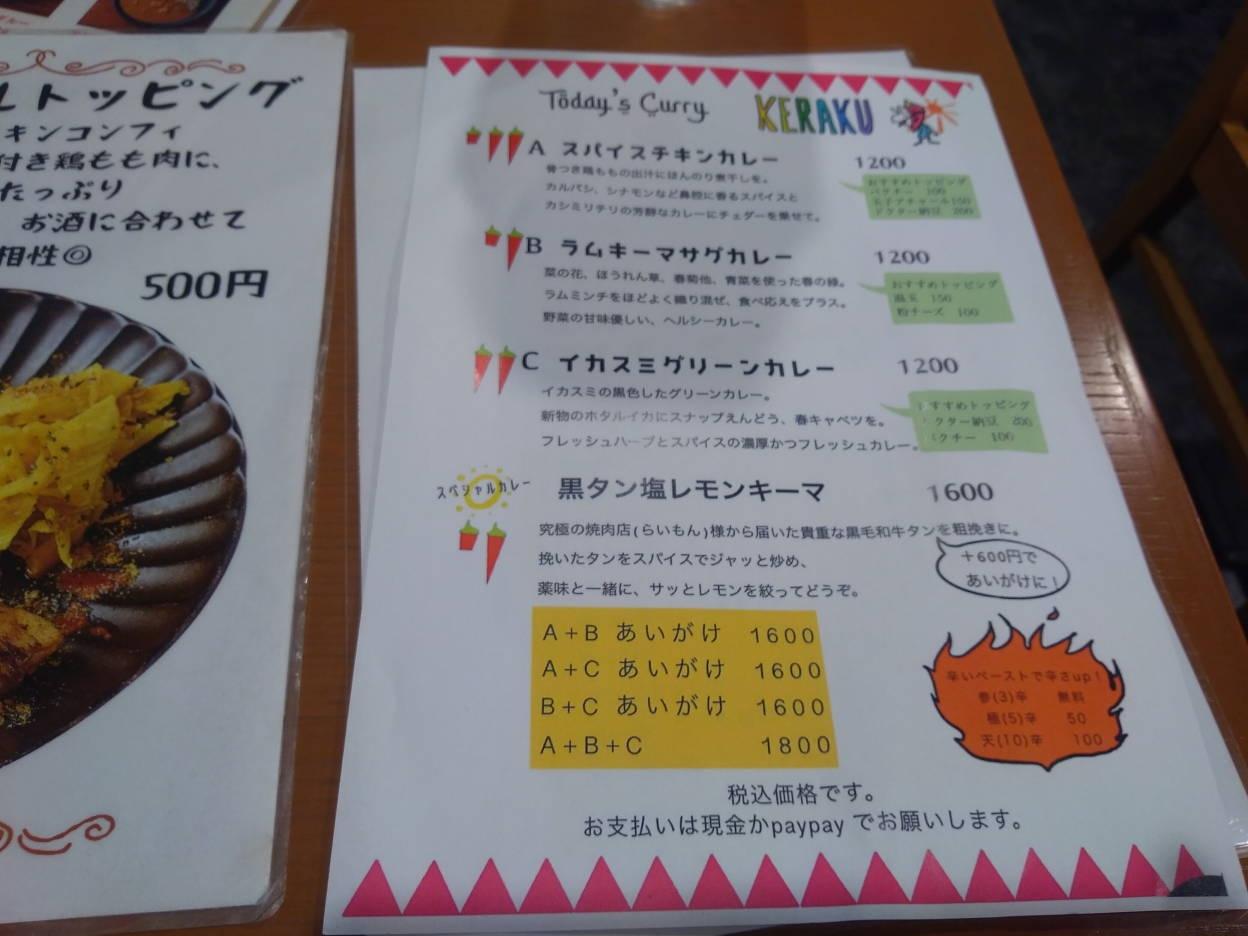 ルトッピング
キンコンフィ
付き鶏もも肉に、
たっぷり
お酒に合わせて
相性◎
500円
Today's Curry KERAKU
A スパイスチキンカレー 1200
骨つき鶏ももの出汁にほんのり煮干しを。
カルパシ、シナモンなど鼻腔に香るスパイスと
カシミリチリの芳醇なカレーにチェダーを乗せて。
おすすめトッピング
パクチー 100
玉子アチャール150
ドクター納豆 200
B ラムキーマサグカレー 1200
菜の花、ほうれん草、春菊他、青菜を使った春の緑。
ラムミンチをほどよく織り混ぜ、食べ応えをプラス。
野菜の甘味優しい、ヘルシーカレー。
おすすめトッピング
温玉 150
粉チーズ 100
C イカスミグリーンカレー 1200
イカスミの黒色したグリーンカレー。
新物のホタルイカにスナップえんどう、春キャベツを。
フレッシュハーブとスパイスの濃厚かつフレッシュカレー。
すすめトッピング
クター納豆 200
クチー 100
スペシャルカレー 黒タン塩レモンキーマ 1600
究極の焼肉店(らいもん)様から届いた貴重な黒毛和牛タンを粗挽きに。
挽いたタンをスパイスでジャッと炒め、
薬味と一緒に、サッとレモンを絞ってどうぞ。
+600円で
あいがけに!
A+B あいがけ 1600
A+C あいがけ 1600
B+C あいがけ 1600
A+B+C 1800
辛いペーストで辛さup!
参(3)辛 無料
極(5)辛 50
天(10)辛 100
税込価格です。
お支払いは現金かpaypay でお願いします。